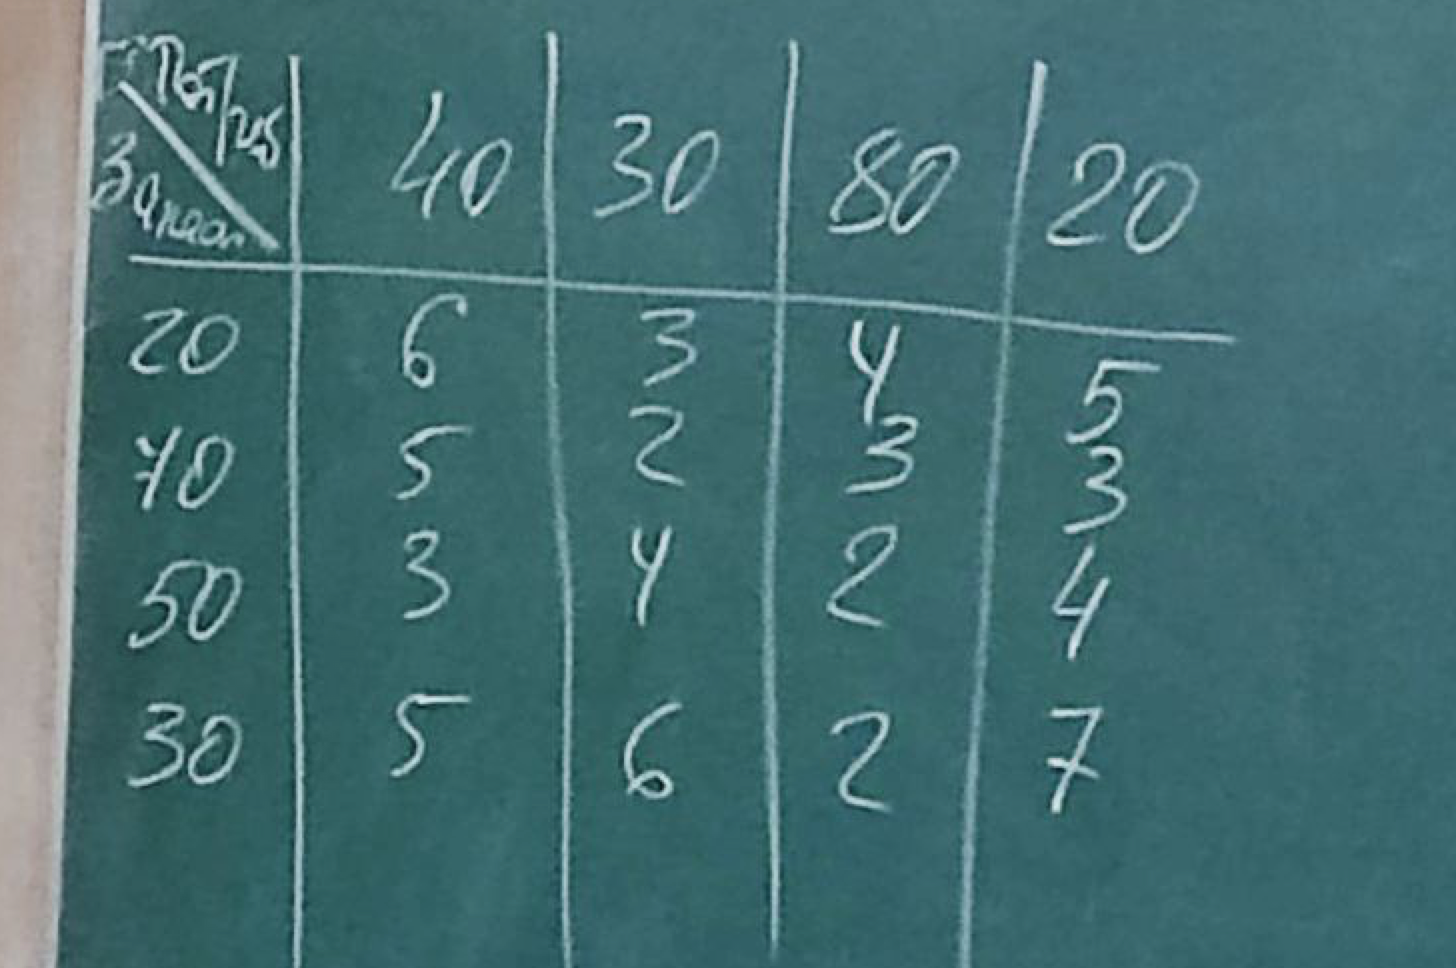 Потр
Запасы
40 30 80 20
20 6 3 4 5
70 5 2 3 3
50 3 4 2 4
30 5 6 2 7